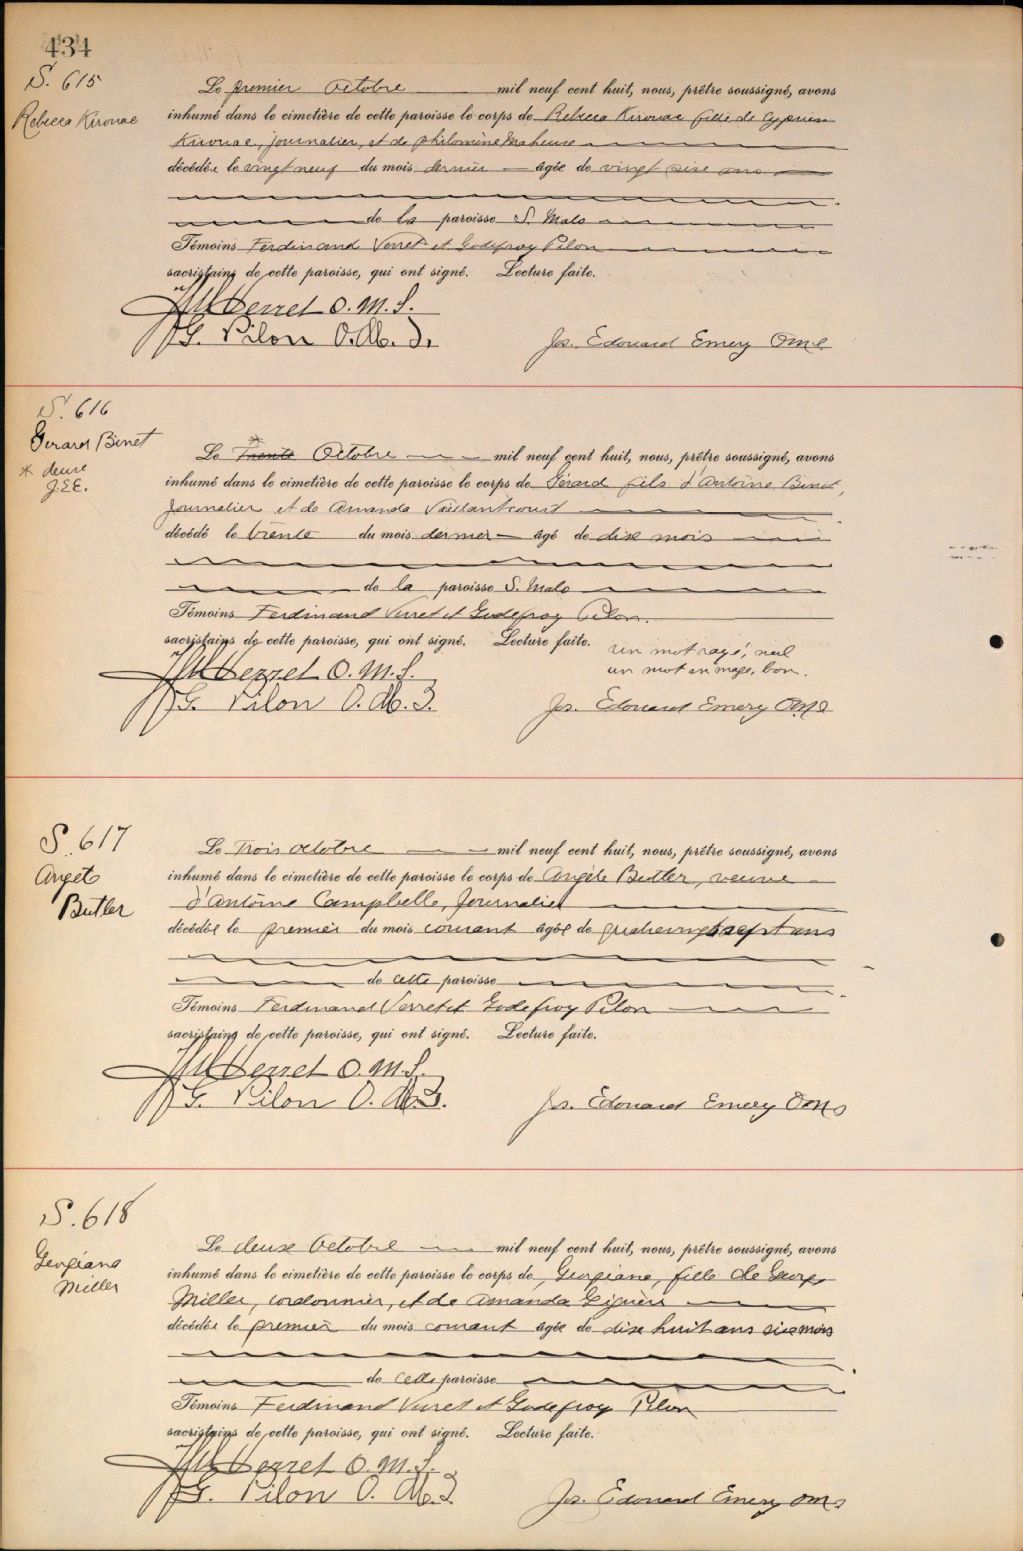 434
S. 615
Rebecca Kirouac
Le premier Octobre mil neuf cent huit, nous, prêtre soussigné, avons
inhumé dans le cimetière de cette paroisse le corps de Rebecca Kirouac fille de Cyprien
Kirouac, journalier, et de philomène Maheux
décédée le vingt neuf du mois dernier âgée de vingt six ans
de la paroisse S. Malo
Témoins Ferdinand Verret et Godefroy Pilon
sacristains de cette paroisse, qui ont signé. Lecture faite.
Verret O.M.I.
G. Pilon O.M.I.
Jos. Edouard Emery OMI
S. 616
Gerard Binet
* deux
J.E.E.
*
Le Trente Octobre mil neuf cent huit, nous, prêtre soussigné, avons
inhumé dans le cimetière de cette paroisse le corps de Gérard fils d'Antoine Binet,
journalier et de Amanda Vaillantcourt
décédé le trente du mois dernier âgé de dix mois
de la paroisse S. Malo
Témoins Ferdinand Verret et Godefroy Pilon.
sacristains de cette paroisse, qui ont signé. Lecture faite.
un mot rayé, nul
un mot en marge, bon.
Verret O.M.I.
G. Pilon O.M.I.
Jos. Edouard Emery OMI
S. 617
Angèle
Butler
Le trois octobre mil neuf cent huit, nous, prêtre soussigné, avons
inhumé dans le cimetière de cette paroisse le corps de Angèle Butler, veuve
d'Antoine Campbelle, Journalier
décédée le premier du mois courant âgée de quatrevingt sept ans
de cette paroisse
Témoins Ferdinand Verret et Godefroy Pilon
sacristains de cette paroisse, qui ont signé. Lecture faite.
Verret O.M.I.
G. Pilon O.M.I.
Jos. Edouard Emery OMI
S. 618
Georgiana
Miller
Le deux Octobre mil neuf cent huit, nous, prêtre soussigné, avons
inhumé dans le cimetière de cette paroisse le corps de Georgiana, fille de George
Miller, cordonnier, et de Amanda Giguère
décédée le premier du mois courant âgée de dix huit ans six mois
de cette paroisse
Témoins Ferdinand Verret et Godefroy Pilon
sacristains de cette paroisse, qui ont signé. Lecture faite.
Verret O.M.I.
G. Pilon O.M.I.
Jos. Edouard Emery OMI